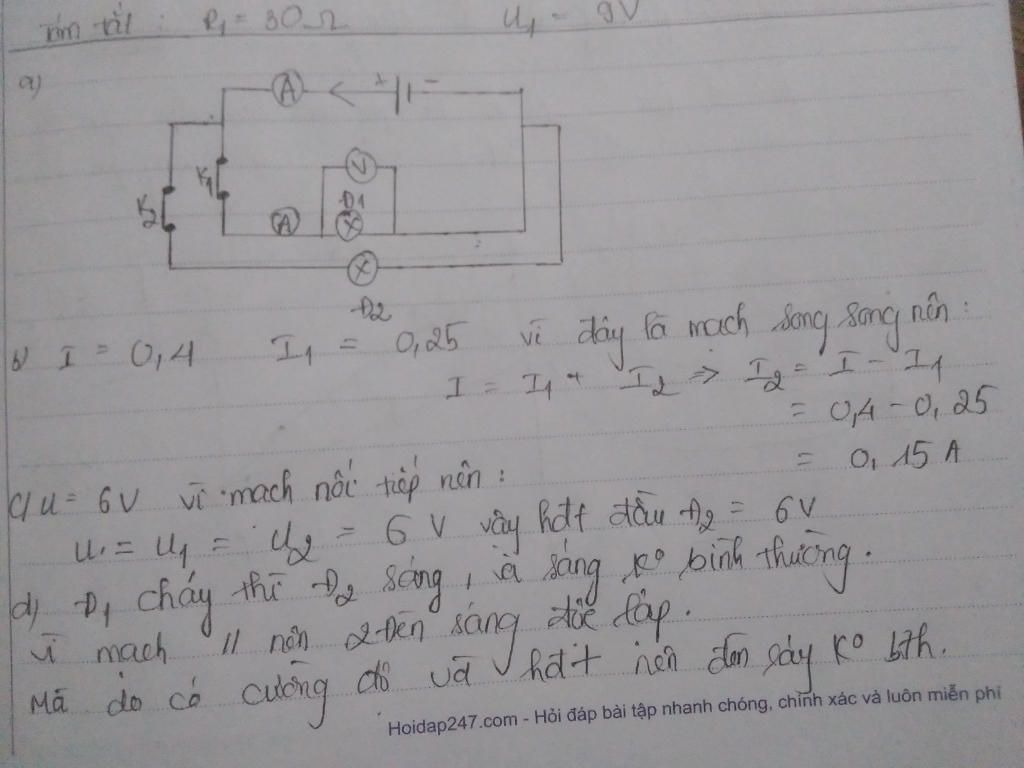 tóm tắt : R₁ = 30Ω U₁ = 9V
a)
A + -
K₁ V
K₂ Đ1
A X
X
Đ2
b) I = 0,4 I₁ = 0,25 vì đây là mạch song song nên :
I = I₁ + I₂ ⇒ I₂ = I - I₁
= 0,4 - 0,25
= 0,15 A
c) U = 6V vì mạch nối tiếp nên :
U = U₁ = U₂ = 6 V vậy hđt đầu Đ₂ = 6V
d) Đ₁ cháy thì Đ₂ sáng, và sáng k⁰ bình thường.
vì mạch // nên 2 đèn sáng độc lập.
Mà do có cường độ và hđt nên đèn k⁰ bth.
Hoidap247.com - Hỏi đáp bài tập nhanh chóng, chính xác và luôn miễn phí